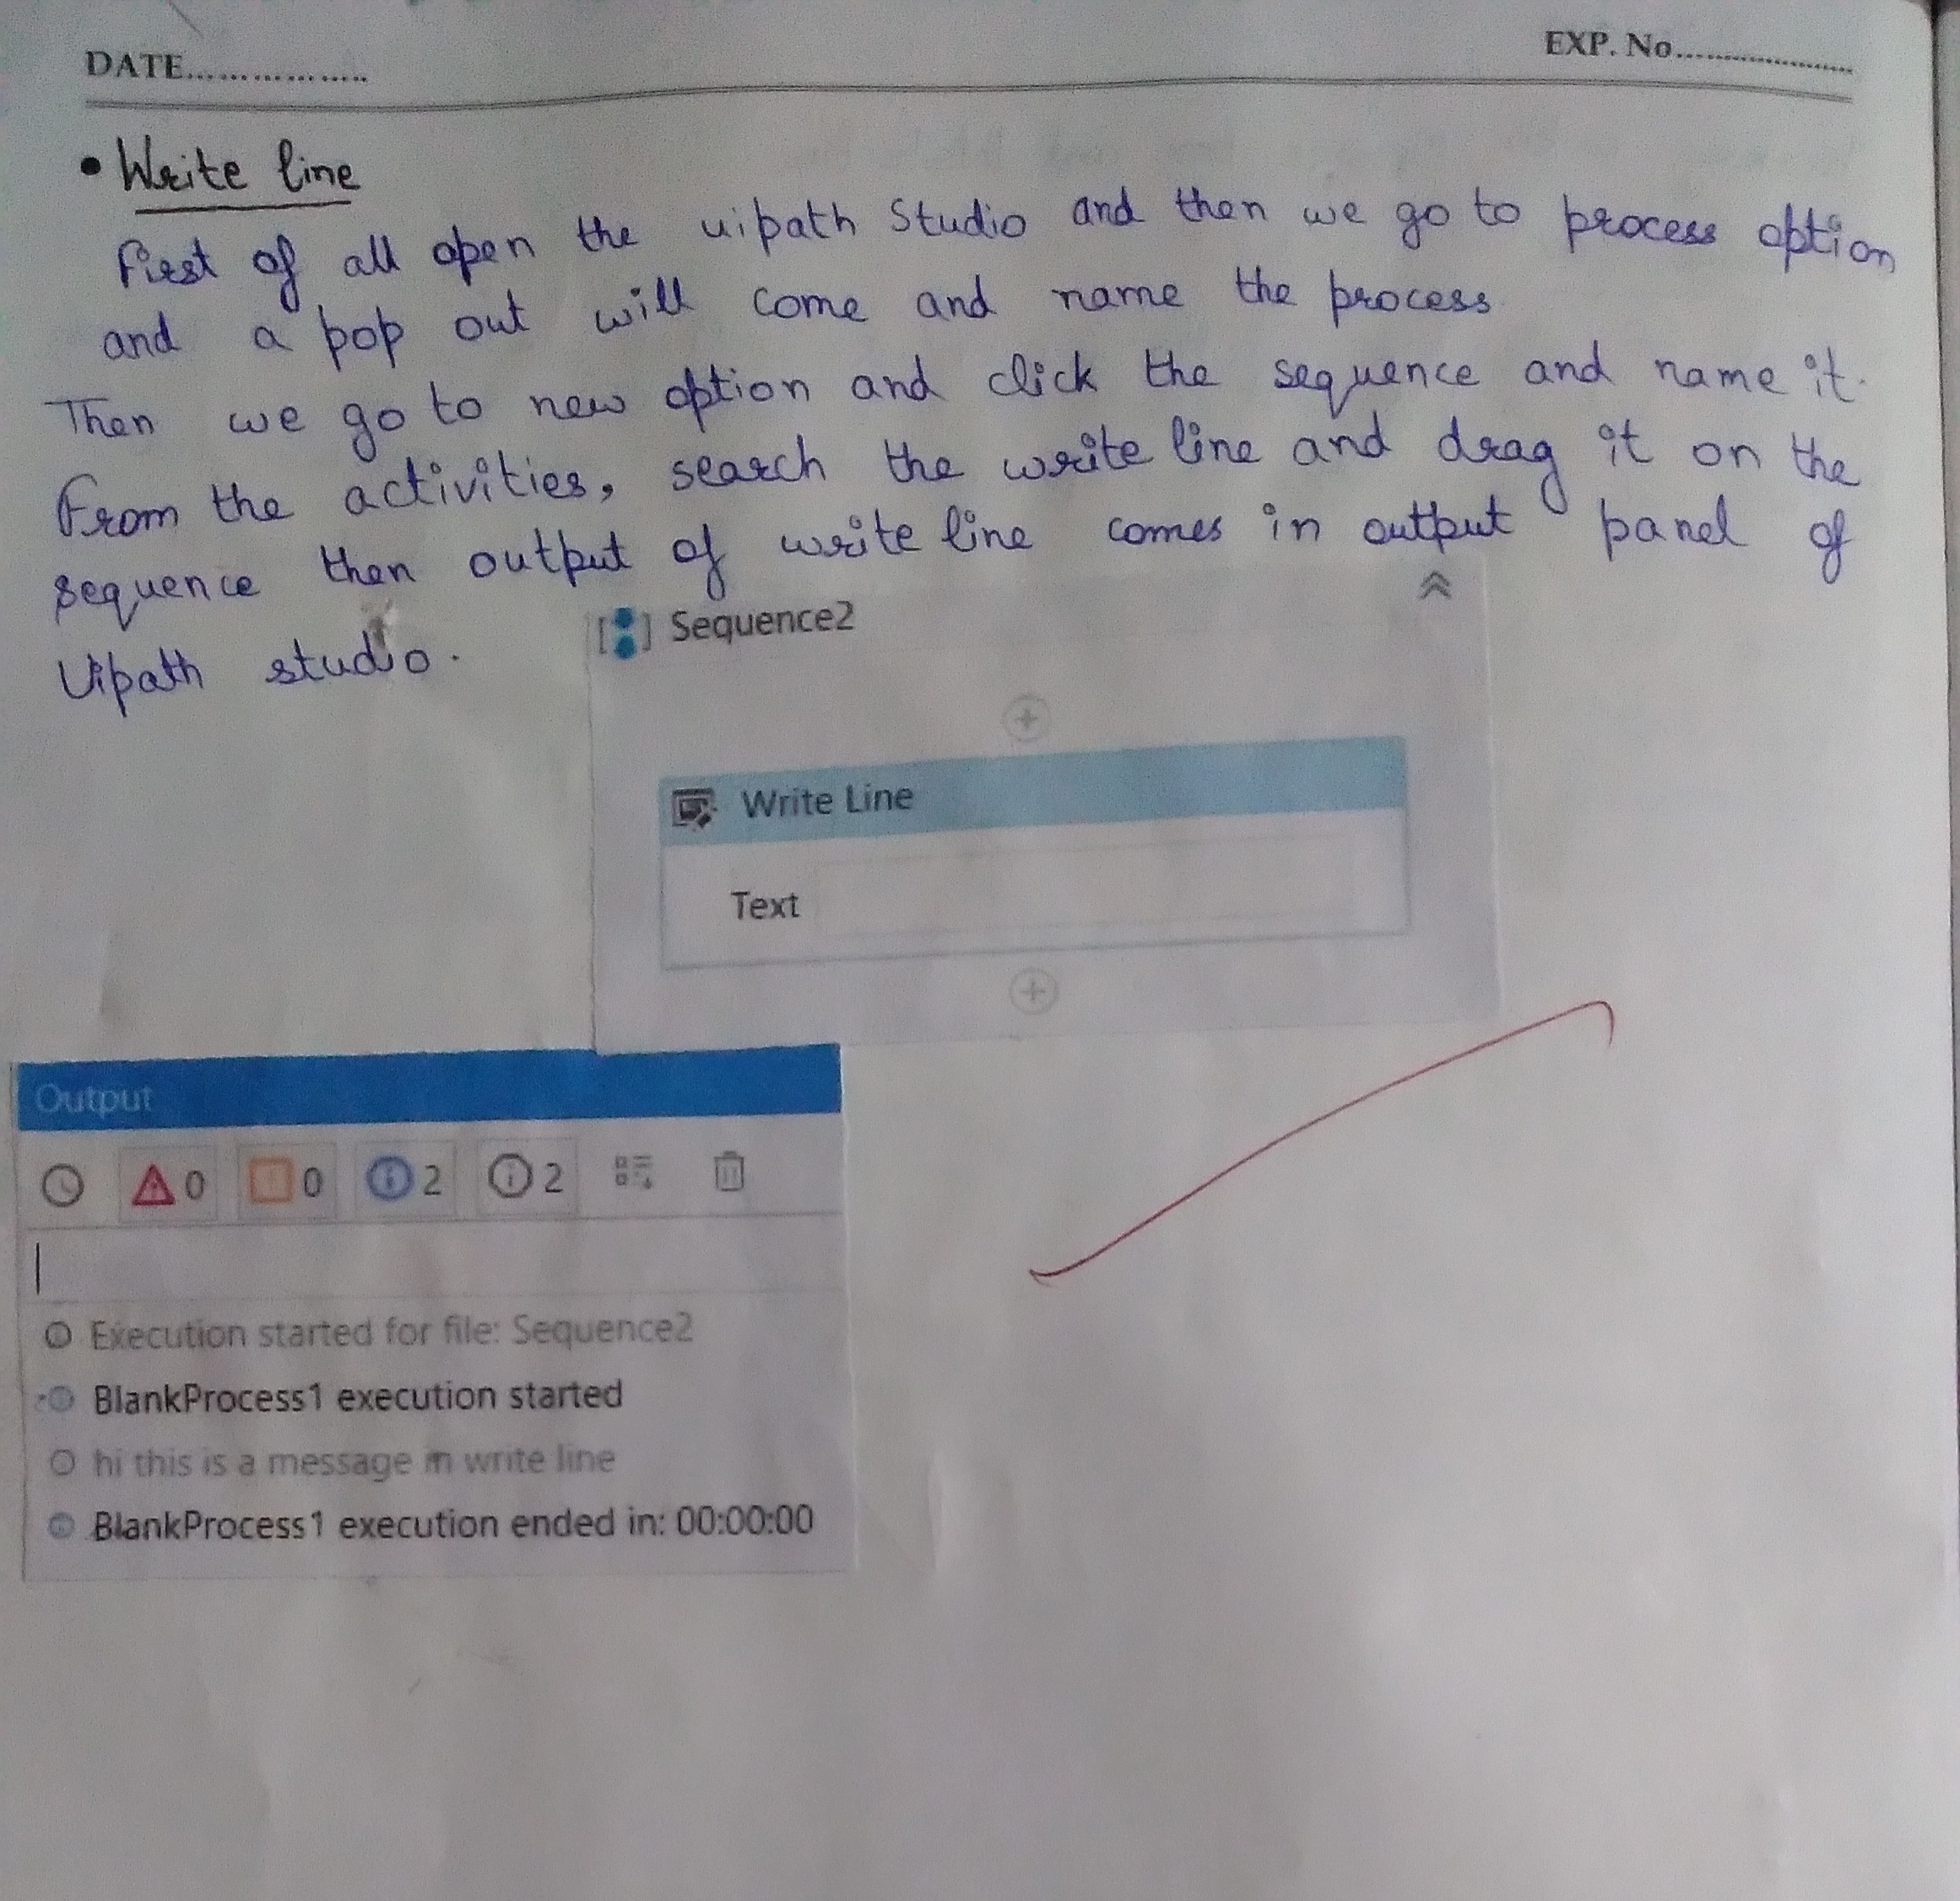 DATE.................
EXP. No.....................
• Write line
First of all open the uipath Studio and then we go to process option
and a pop out will come and name the process
Then we go to new option and click the sequence and name it.
From the activities, search the write line and drag it on the
sequence then output of write line comes in output panel of
Uipath studio.
Sequence2
Write Line
Text
Output
0 0 2 2
Execution started for file: Sequence2
BlankProcess1 execution started
hi this is a message in write line
BlankProcess1 execution ended in: 00:00:00